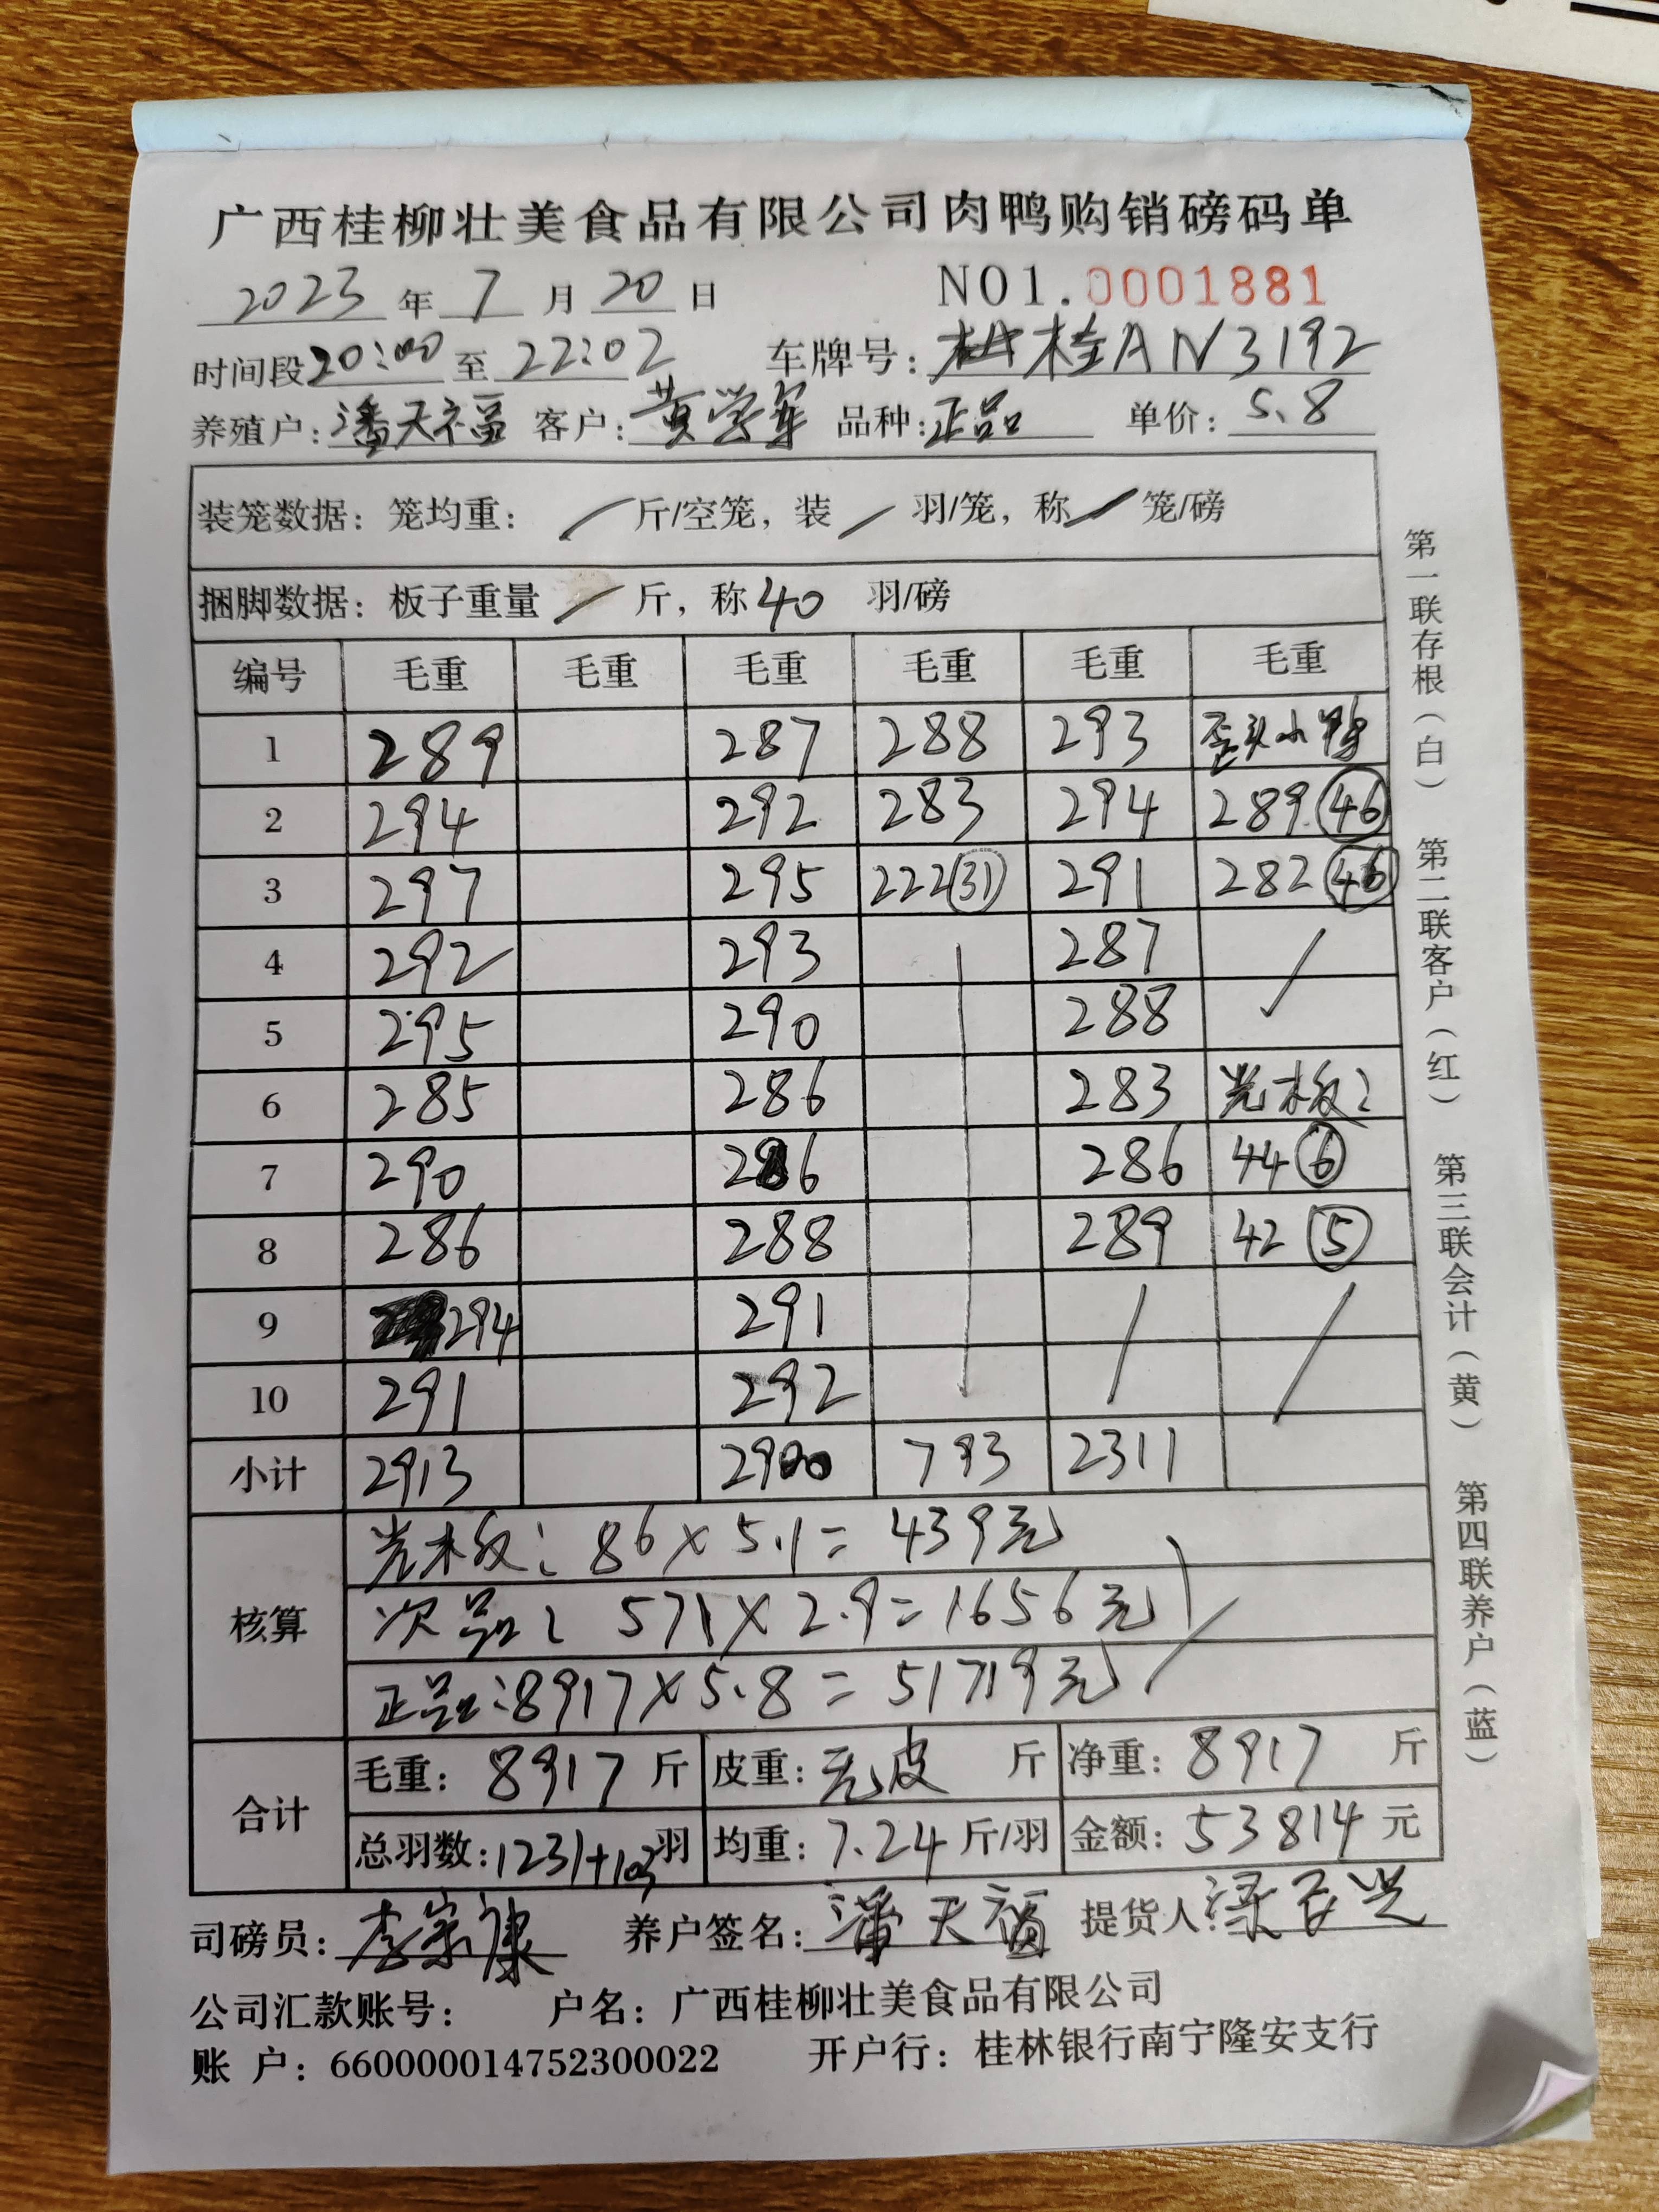 广西桂柳壮美食品有限公司肉鸭购销磅码单
2023 年 7 月 20 日 NO1.0001881
时间段 20:00 至 22:02 车牌号: 桂AN3192
养殖户: 潘天福 客户: 黄学军 品种: 正品 单价: 5.8
装笼数据: 笼均重: / 斤/空笼, 装 / 羽/笼, 称 / 笼/磅
捆脚数据: 板子重量 / 斤, 称 40 羽/磅
编号 毛重 毛重 毛重 毛重 毛重 毛重
1 289 287 288 293 歪头小鸭
2 294 292 283 294 289 46
3 297 295 222 31 291 282 46
4 292 293 287
5 295 290 288
6 285 286 283 光板:
7 290 286 286 44 6
8 286 288 289 42 5
9 294 291
10 291 292
小计 2913 2900 793 2311
核算 光板: 86×5.1=439元
次品: 571×2.9=1656元
正品:8917×5.8=51719元
合计 毛重: 8917 斤 皮重: 无皮 斤 净重: 8917 斤
总羽数: 1231+103 羽 均重: 7.24 斤/羽 金额: 53814 元
司磅员: 李崇康 养户签名: 潘天福 提货人:
公司汇款账号: 户名: 广西桂柳壮美食品有限公司
账 户: 660000014752300022 开户行: 桂林银行南宁隆安支行
第一联存根(白) 第二联客户(红) 第三联会计(黄) 第四联养户(蓝)